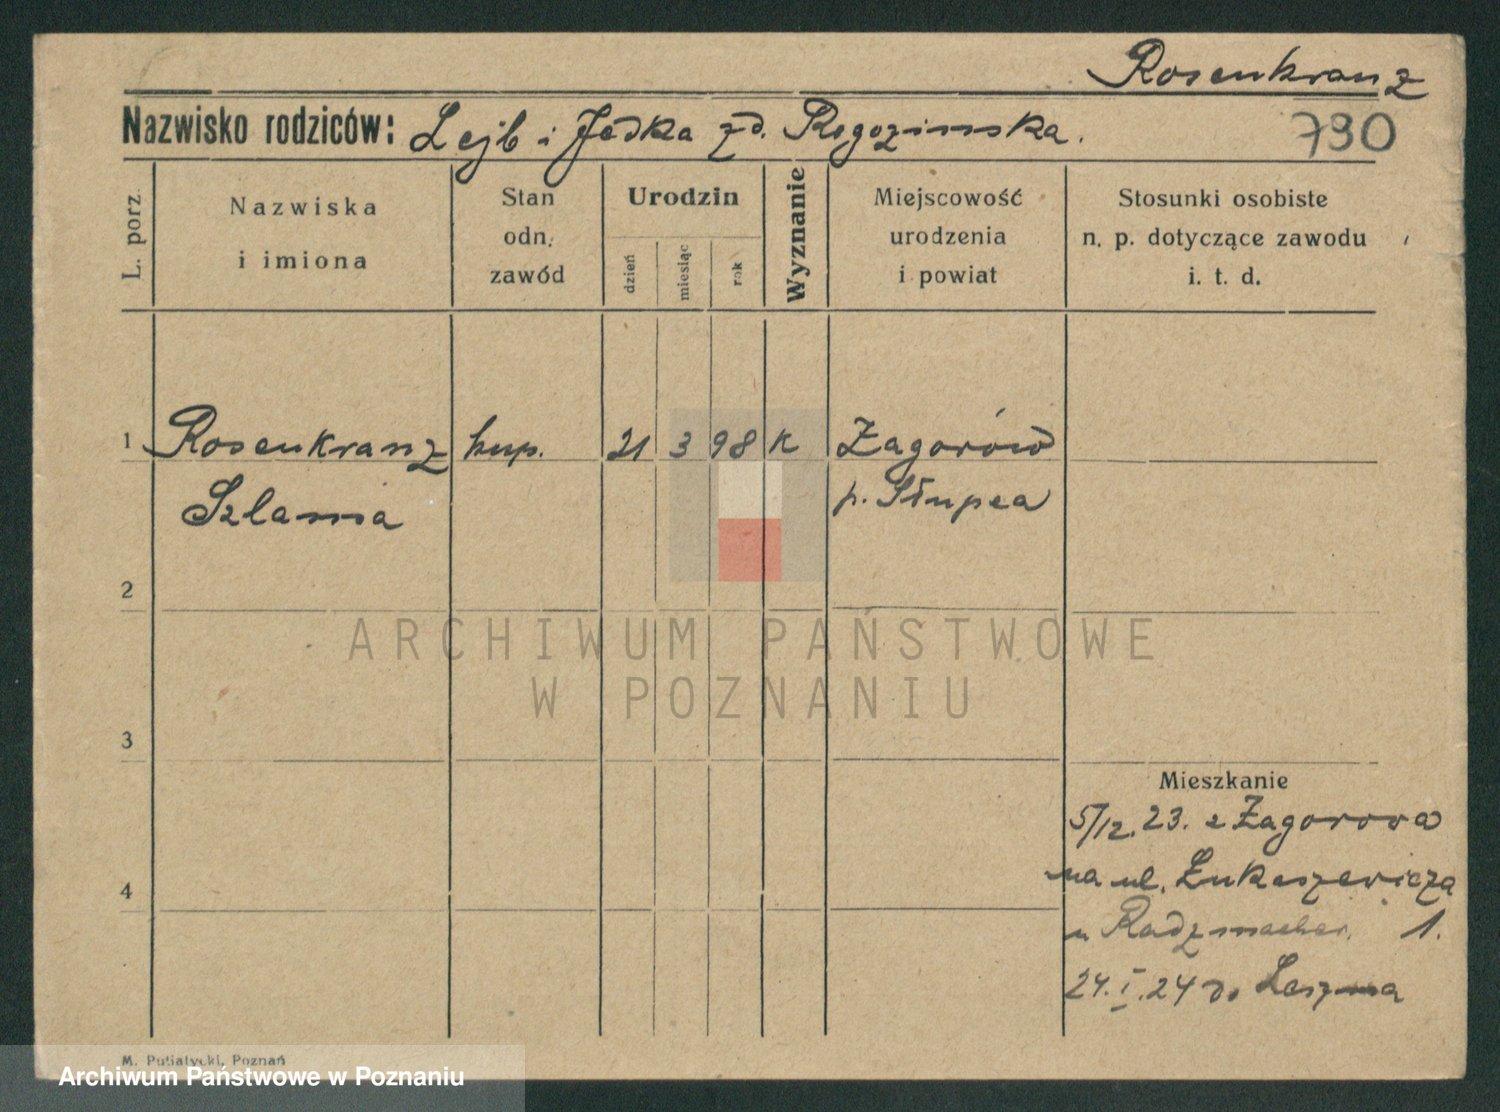 Rosenkranz
Nazwisko rodziców: Lejb i Jedka zd. Rogozinska.
790
L. porz.
Nazwiska
i imiona
Stan
odn.
zawód
Urodzin
dzień
miesiąc
rok
Wyznanie
Miejscowość
urodzenia
i powiat
Stosunki osobiste
n. p. dotyczące zawodu
i. t. d.
1 Rosenkranz kup. 21 3 98 Zagorów
Szlama p. Słupca
2
3
4
ARCHIWUM PAŃSTWOWE
W POZNANIU
Mieszkanie
5/12. 23. z Zagorowa
na ul. Łukaszewicza
u Radzmacher. 1.
24. I. 24 do Leszna
M. Putiatycki, Poznań
Archiwum Państwowe w Poznaniu